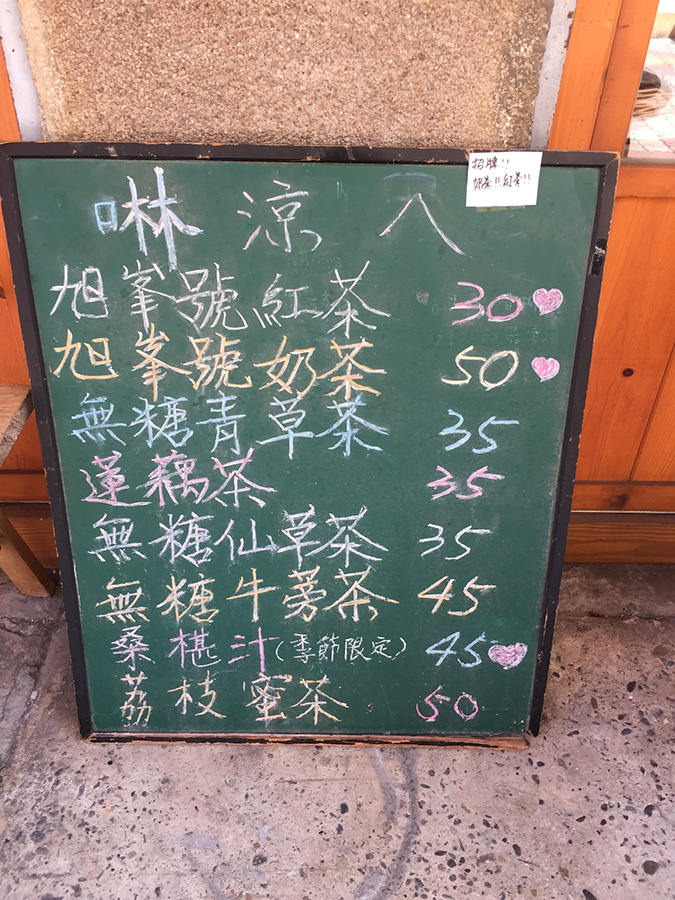 招牌!!
奶茶!!紅茶!!
啉涼八
旭峯號紅茶 30
旭峯號奶茶 50
無糖青草茶 35
蓮藕茶 35
無糖仙草茶 35
無糖牛蒡茶 45
桑椹汁(季節限定) 45
荔枝蜜茶 50